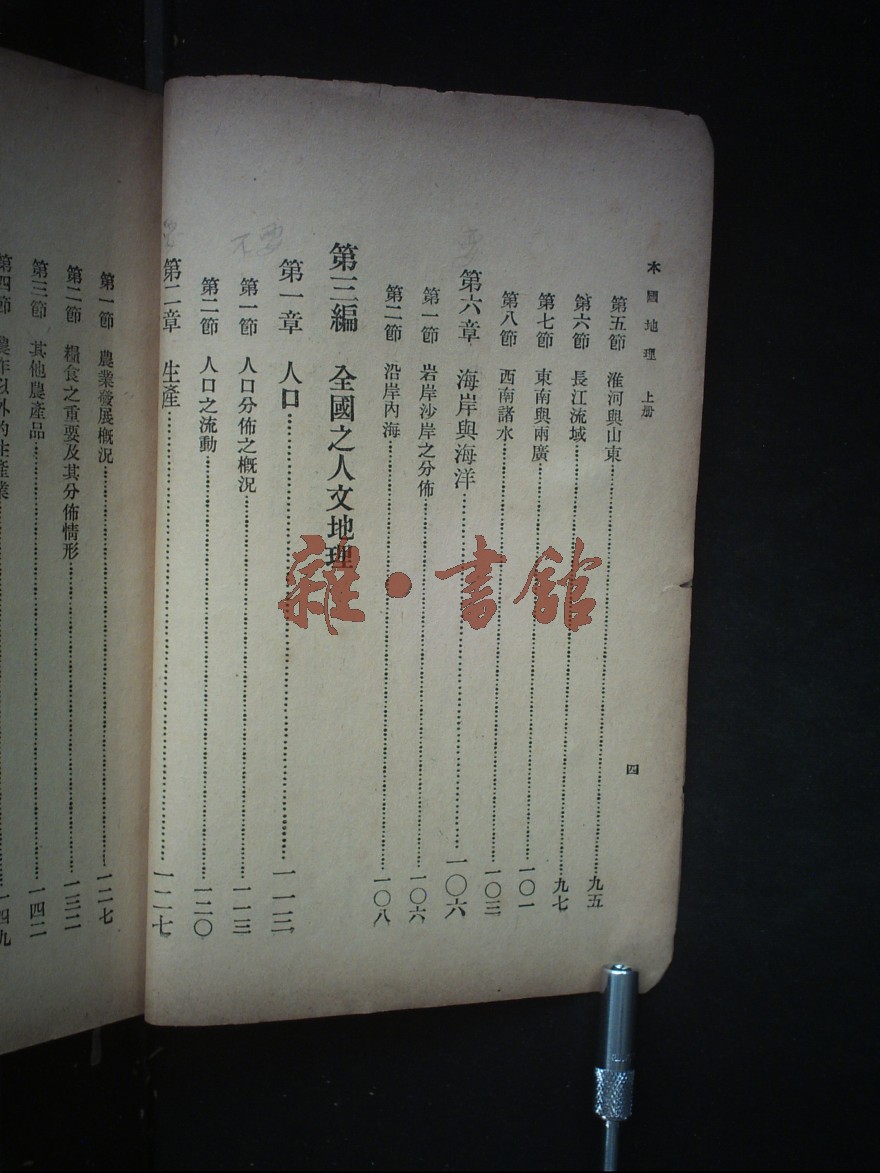 本國地理 上册
四
第五節 淮河與山東……九五
第六節 長江流域……九七
第七節 東南與兩廣……一〇一
第八節 西南諸水……一〇三
第六章 海岸與海洋……一〇六
第一節 岩岸沙岸之分佈……一〇六
第二節 沿岸內海……一〇八
第三編 全國之人文地理
第一章 人口……一一三
第一節 人口分佈之概況……一一三
第二節 人口之流動……一二〇
第二章 生產……一二七
第一節 農業發展概況……一二七
第二節 糧食之重要及其分佈情形……一三二
第三節 其他農產品……一四二
第四節 農作以外的生產業……一四九
不要
雜·書館